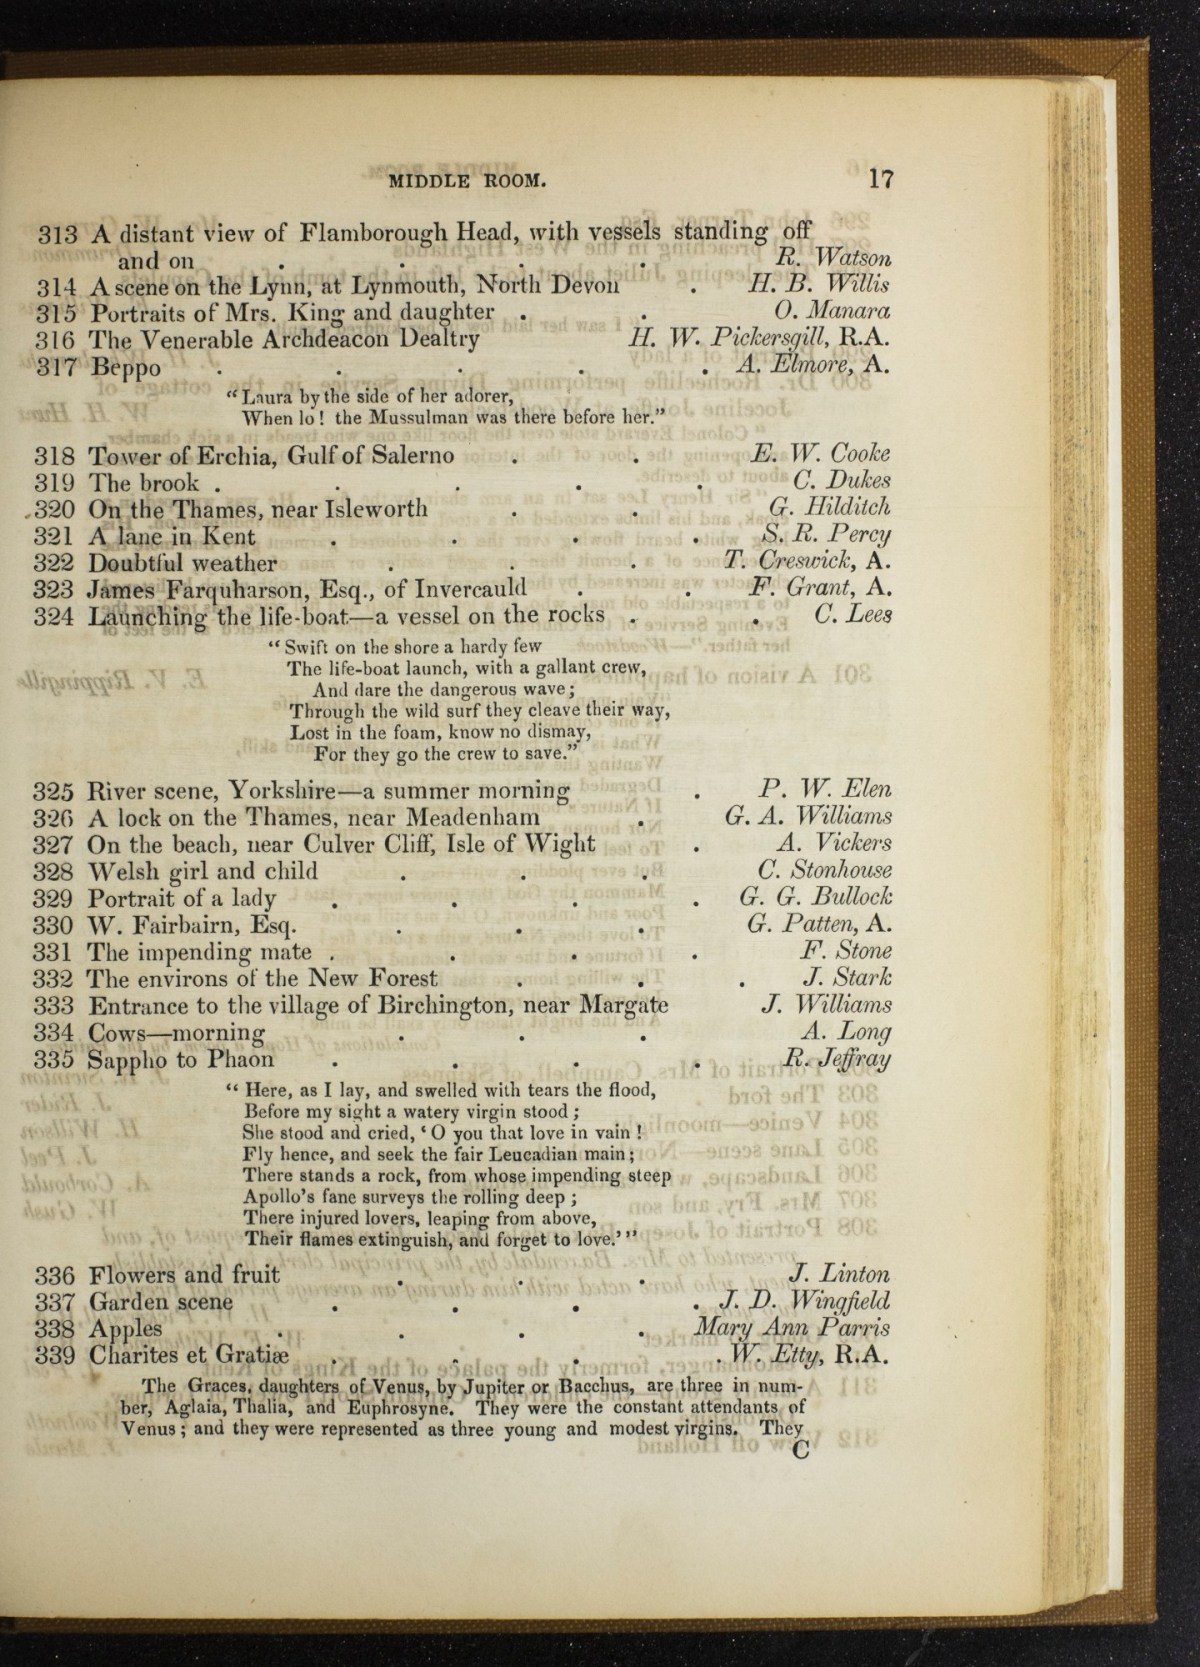 MIDDLE ROOM. 17
313 A distant view of Flamborough Head, with vessels standing off
and on . . . . R. Watson
314 A scene on the Lynn, at Lynmouth, North Devon . H. B. Willis
315 Portraits of Mrs. King and daughter . . O. Manara
316 The Venerable Archdeacon Dealtry H. W. Pickersgill, R.A.
317 Beppo . . . . . A. Elmore, A.
“Laura by the side of her adorer,
When lo! the Mussulman was there before her.”
318 Tower of Erchia, Gulf of Salerno . . E. W. Cooke
319 The brook . . . . . C. Dukes
320 On the Thames, near Isleworth . . G. Hilditch
321 A lane in Kent . . . . S. R. Percy
322 Doubtful weather . . . T. Creswick, A.
323 James Farquharson, Esq., of Invercauld . . F. Grant, A.
324 Launching the life-boat—a vessel on the rocks . . C. Lees
“Swift on the shore a hardy few
The life-boat launch, with a gallant crew,
And dare the dangerous wave;
Through the wild surf they cleave their way,
Lost in the foam, know no dismay,
For they go the crew to save.”
325 River scene, Yorkshire—a summer morning . P. W. Elen
326 A lock on the Thames, near Meadenham . G. A. Williams
327 On the beach, near Culver Cliff, Isle of Wight . A. Vickers
328 Welsh girl and child . . . C. Stonhouse
329 Portrait of a lady . . . . G. G. Bullock
330 W. Fairbairn, Esq. . . . G. Patten, A.
331 The impending mate . . . . F. Stone
332 The environs of the New Forest . . . J. Stark
333 Entrance to the village of Birchington, near Margate J. Williams
334 Cows—morning . . . A. Long
335 Sappho to Phaon . . . . R. Jeffray
“Here, as I lay, and swelled with tears the flood,
Before my sight a watery virgin stood;
She stood and cried, ‘O you that love in vain!
Fly hence, and seek the fair Leucadian main;
There stands a rock, from whose impending steep
Apollo’s fane surveys the rolling deep;
There injured lovers, leaping from above,
Their flames extinguish, and forget to love.’”
336 Flowers and fruit . . . J. Linton
337 Garden scene . . . . J. D. Wingfield
338 Apples . . . . Mary Ann Parris
339 Charites et Gratiæ . . . . W. Etty, R.A.
The Graces, daughters of Venus, by Jupiter or Bacchus, are three in num-
ber, Aglaia, Thalia, and Euphrosyne. They were the constant attendants of
Venus; and they were represented as three young and modest virgins. They
C